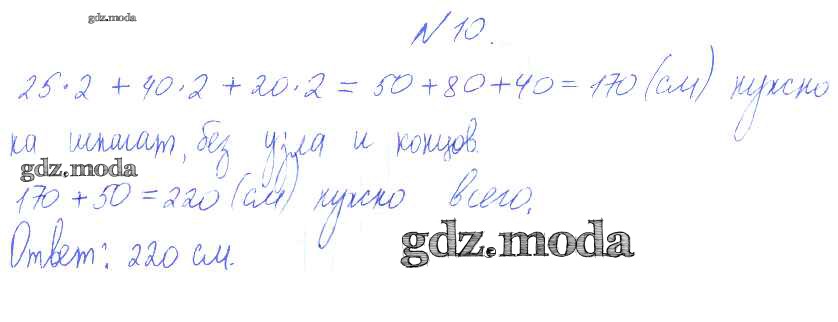 gdz.moda
N 10.
25·2 + 40·2 + 20·2 = 50+80+40 = 170 (см) нужно
на шпагат, без узла и концов.
gdz.moda
170 + 50 = 220 (см) нужно всего.
gdz.moda
Ответ: 220 см.